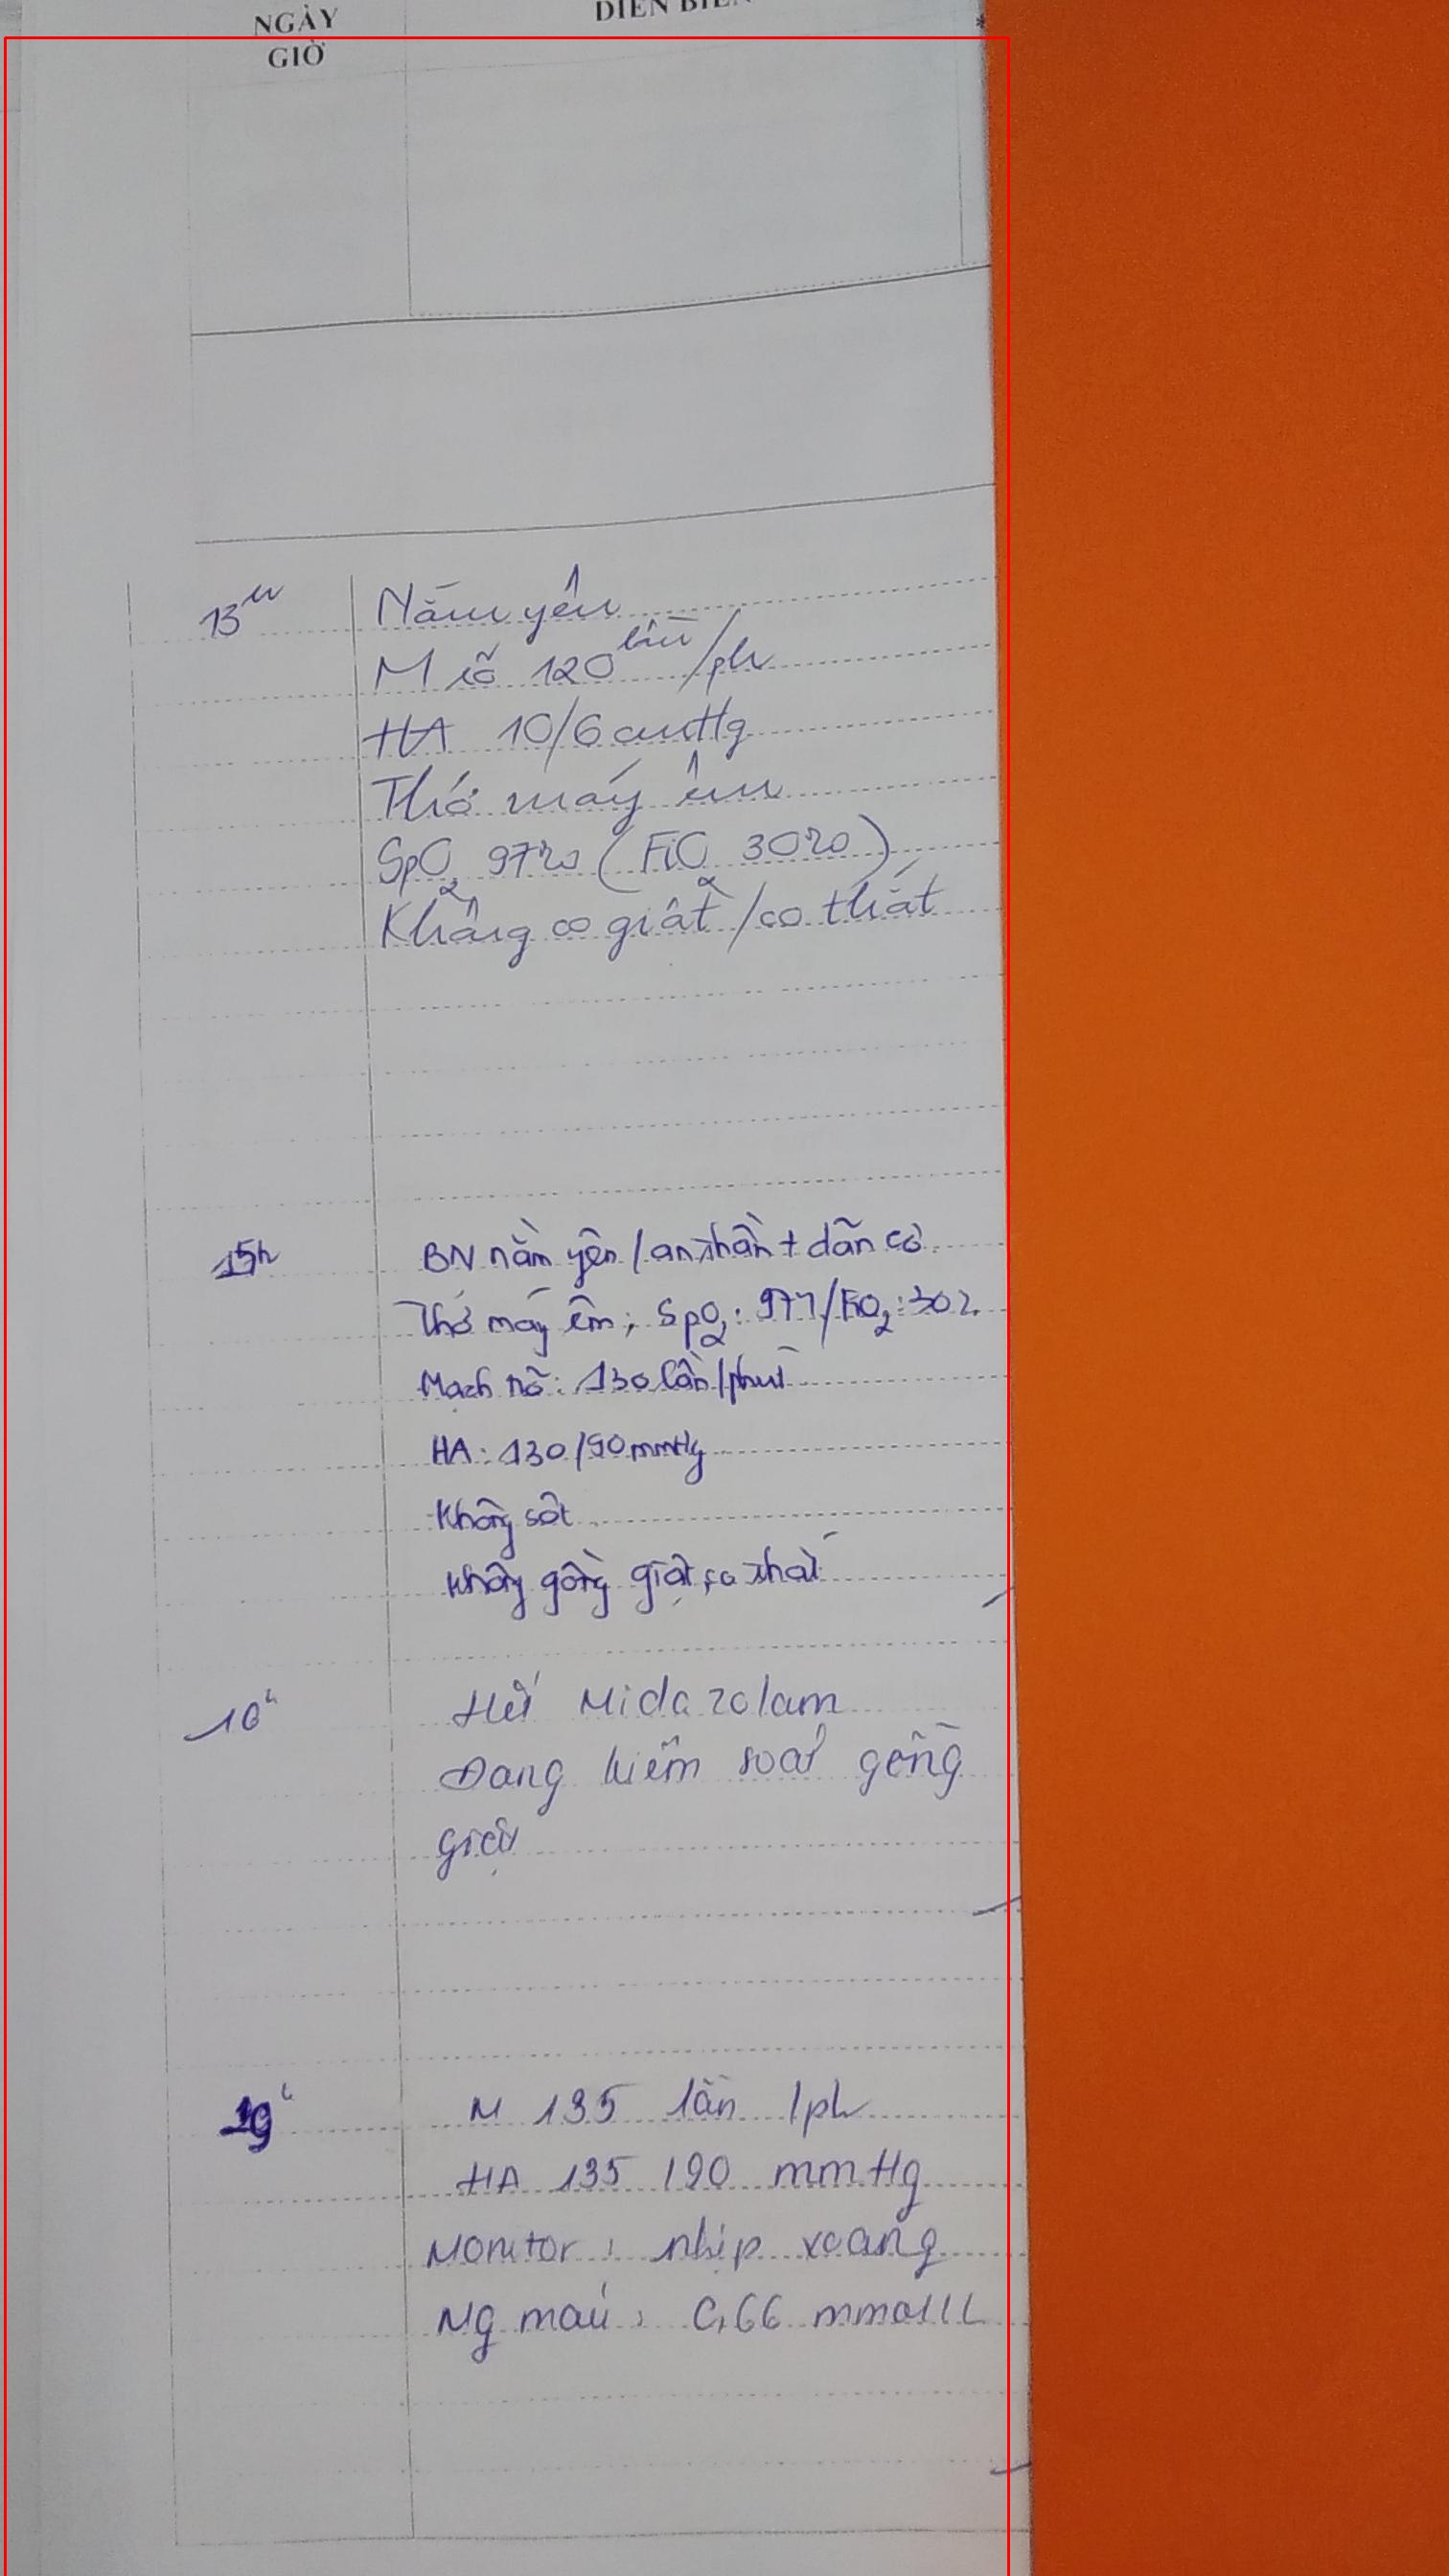 NGÀY
GIỜ
DIỄN BIẾN
13h
Nằm yên
M rõ 120 lần/ph
HA 10/6 cmHg
Thở máy êm
SpO2 97% (FiO2 30%)
Không co giật / co thắt
15h
BN nằm yên / an thần + dãn cơ
Thở máy êm, SpO2: 97% / FiO2: 30%
Mạch rõ: 130 lần/phút
HA: 130/90 mmHg
Không sốt
Không gồng giật, co thắt
16h
Hết Midazolam
Đang kiểm soát gồng
giật
19h
M 135 lần /ph
HA 135 /90 mmHg
Monitor: nhịp xoang
Ng máu: 6,66 mmol/L